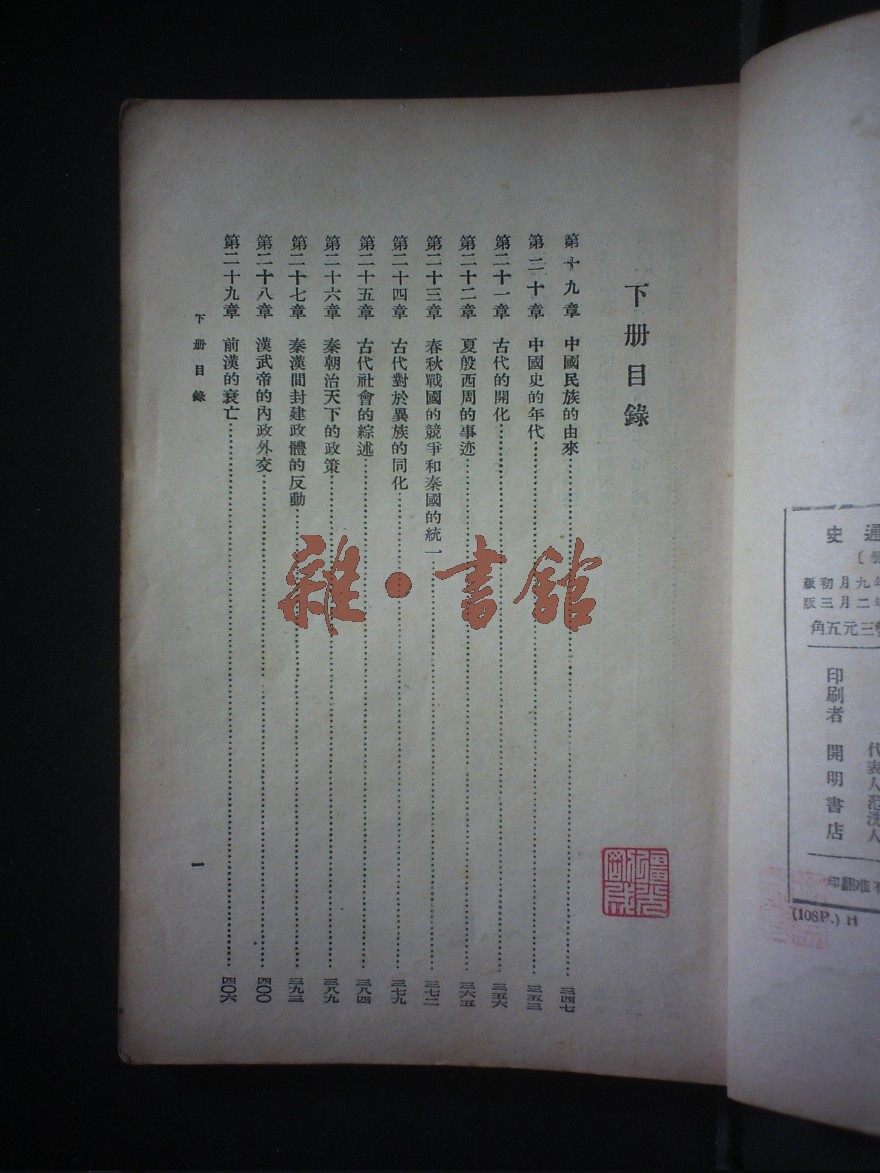 下册目錄
第十九章 中國民族的由來 三四七
第二十章 中國史的年代 三五三
第二十一章 古代的開化 三五六
第二十二章 夏殷西周的事迹 三六五
第二十三章 春秋戰國的競爭和秦國的統一 三七二
第二十四章 古代對於異族的同化 三七九
第二十五章 古代社會的綜述 三八四
第二十六章 秦朝治天下的政策 三八九
第二十七章 秦漢間封建政體的反動 三九三
第二十八章 漢武帝的內政外交 四〇〇
第二十九章 前漢的衰亡 四〇六
下册目錄
一
雜·書館
通史
年九月初版
年二月三版
幣三元五角
印刷者 開明書店
代表人范洗人
有不准翻印
(108P.) H